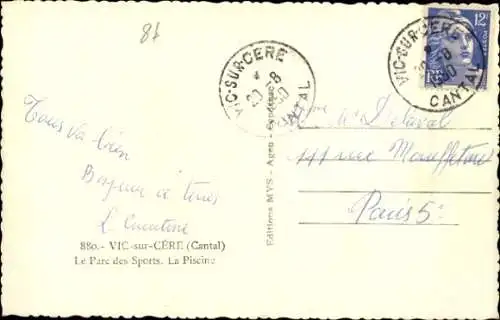 81
VIC-SUR-CERE
* 20-8
1950
CANTAL
12F
VIC-SUR-CERE
* 20-8
1950
CANTAL
Tous va bien
Bonjour à tous
880.- VIC-sur-CÈRE (Cantal)
Le Parc des Sports. La Piscine
Editions MYS - Agen -
Delaval
111 rue Mouffetard
Paris 5e